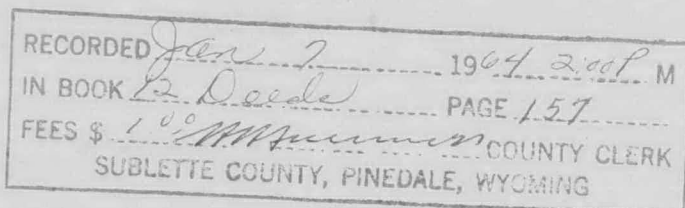 RECORDED Jan 7 1964 2:00 P M
IN BOOK 12 Deeds PAGE 157
FEES $ 1 00 COUNTY CLERK
SUBLETTE COUNTY, PINEDALE, WYOMING